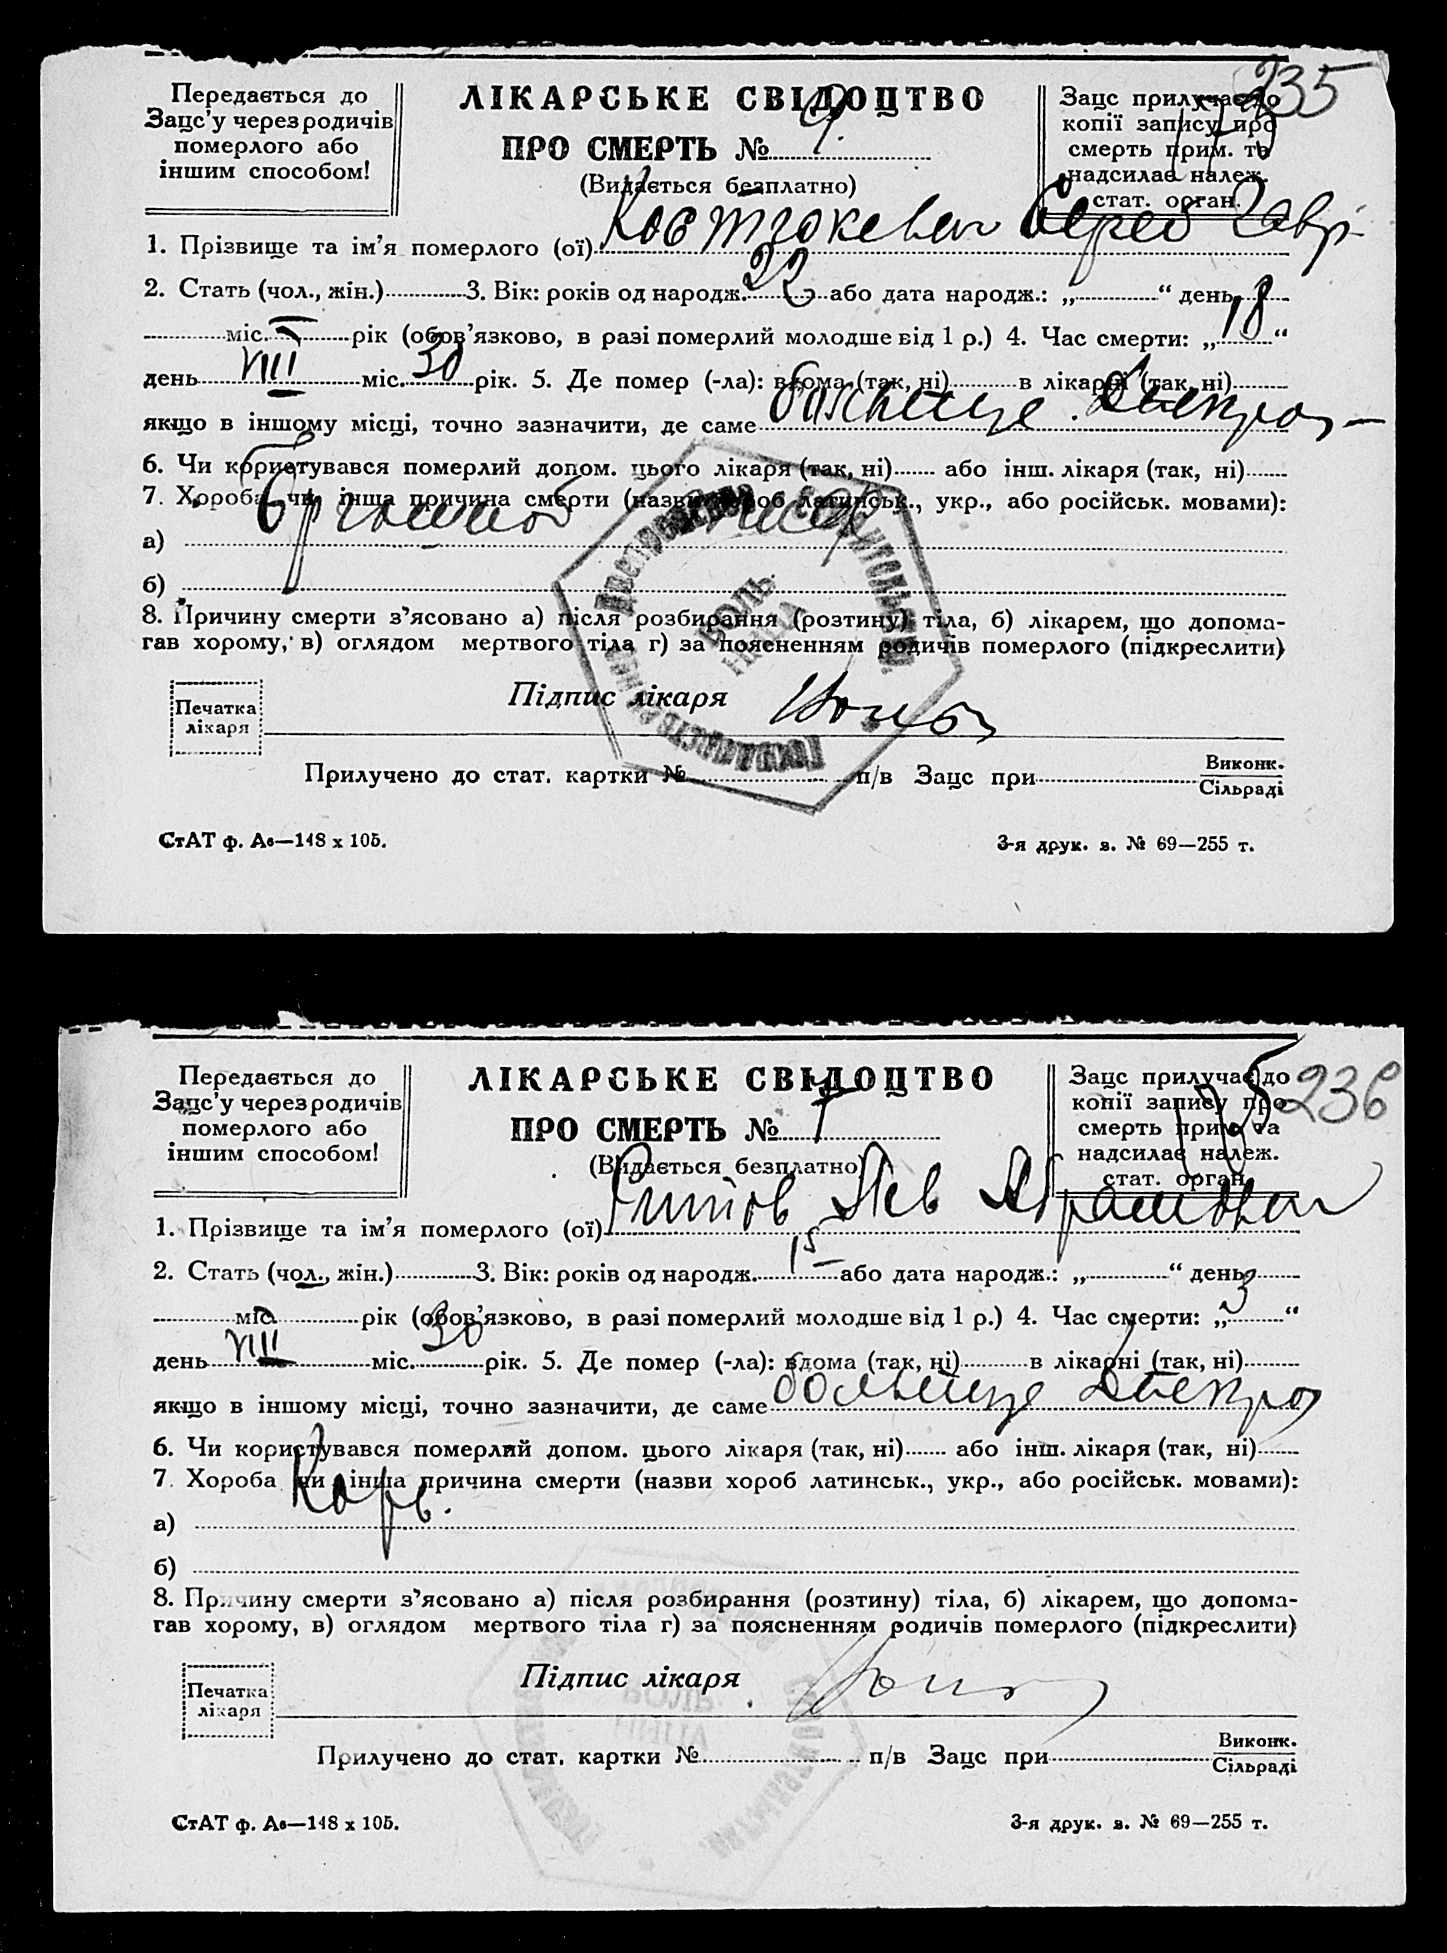 Передається до
Загс'у через родичів
померлого або
іншим способом!
ЛІКАРСЬКЕ СВІДОЦТВО
ПРО СМЕРТЬ № 9.
(Видається безплатно)
Загс прилучає до
копії запису про
смерть прим. та
надсилає належ.
стат. орган.
235
1. Прізвище та ім'я померлого (ої)
2. Стать (чол., жін.) 3. Вік: років од народж. 22 або дата народж.: „ “ день
міс. рік (обов'язково, в разі померлий молодше від 1 р.) 4. Час смерти: „ 18 “
день VIII міс. 30 рік. 5. Де помер (-ла): вдома (так, ні) в лікарні (так, ні)
якщо в іншому місці, точно зазначити, де саме больнице
6. Чи користувався померлий допом. цього лікаря (так, ні) або інш. лікаря (так, ні)
7. Хороба чи інша причина смерти (назви хороб латинськ., укр., або російськ. мовами):
Брюшной тиф
а)
б)
8. Причину смерти з'ясовано а) після розбирання (розтину) тіла, б) лікарем, що допома-
гав хорому, в) оглядом мертвого тіла г) за поясненням родичів померлого (підкреслити)
Печатка
лікаря
Підпис лікаря
БОЛЬ
НИЦА
Прилучено до стат. картки № п/в Загс при Виконк.
Сільраді
СтАТ ф. А6—148 х 105.
3-я друк. з. № 69—255 т.
Передається до
Загс'у через родичів
померлого або
іншим способом!
ЛІКАРСЬКЕ СВІДОЦТВО
ПРО СМЕРТЬ №
(Видається безплатно)
Загс прилучає до
копії запису про
смерть прим. та
надсилає належ.
стат. орган.
236
1. Прізвище та ім'я померлого (ої) Лев Абрамович
2. Стать (чол., жін.) 3. Вік: років од народж. 15 або дата народж.: „ “ день
міс. рік (обов'язково, в разі померлий молодше від 1 р.) 4. Час смерти: „ 3 “
день VIII міс. 30 рік. 5. Де помер (-ла): вдома (так, ні) в лікарні (так, ні)
якщо в іншому місці, точно зазначити, де саме больнице
6. Чи користувався померлий допом. цього лікаря (так, ні) або інш. лікаря (так, ні)
7. Хороба чи інша причина смерти (назви хороб латинськ., укр., або російськ. мовами):
Корь.
а)
б)
8. Причину смерти з'ясовано а) після розбирання (розтину) тіла, б) лікарем, що допома-
гав хорому, в) оглядом мертвого тіла г) за поясненням родичів померлого (підкреслити)
Печатка
лікаря
Підпис лікаря
Прилучено до стат. картки № п/в Загс при Виконк.
Сільраді
СтАТ ф. А6—148 х 105.
3-я друк. з. № 69—255 т.